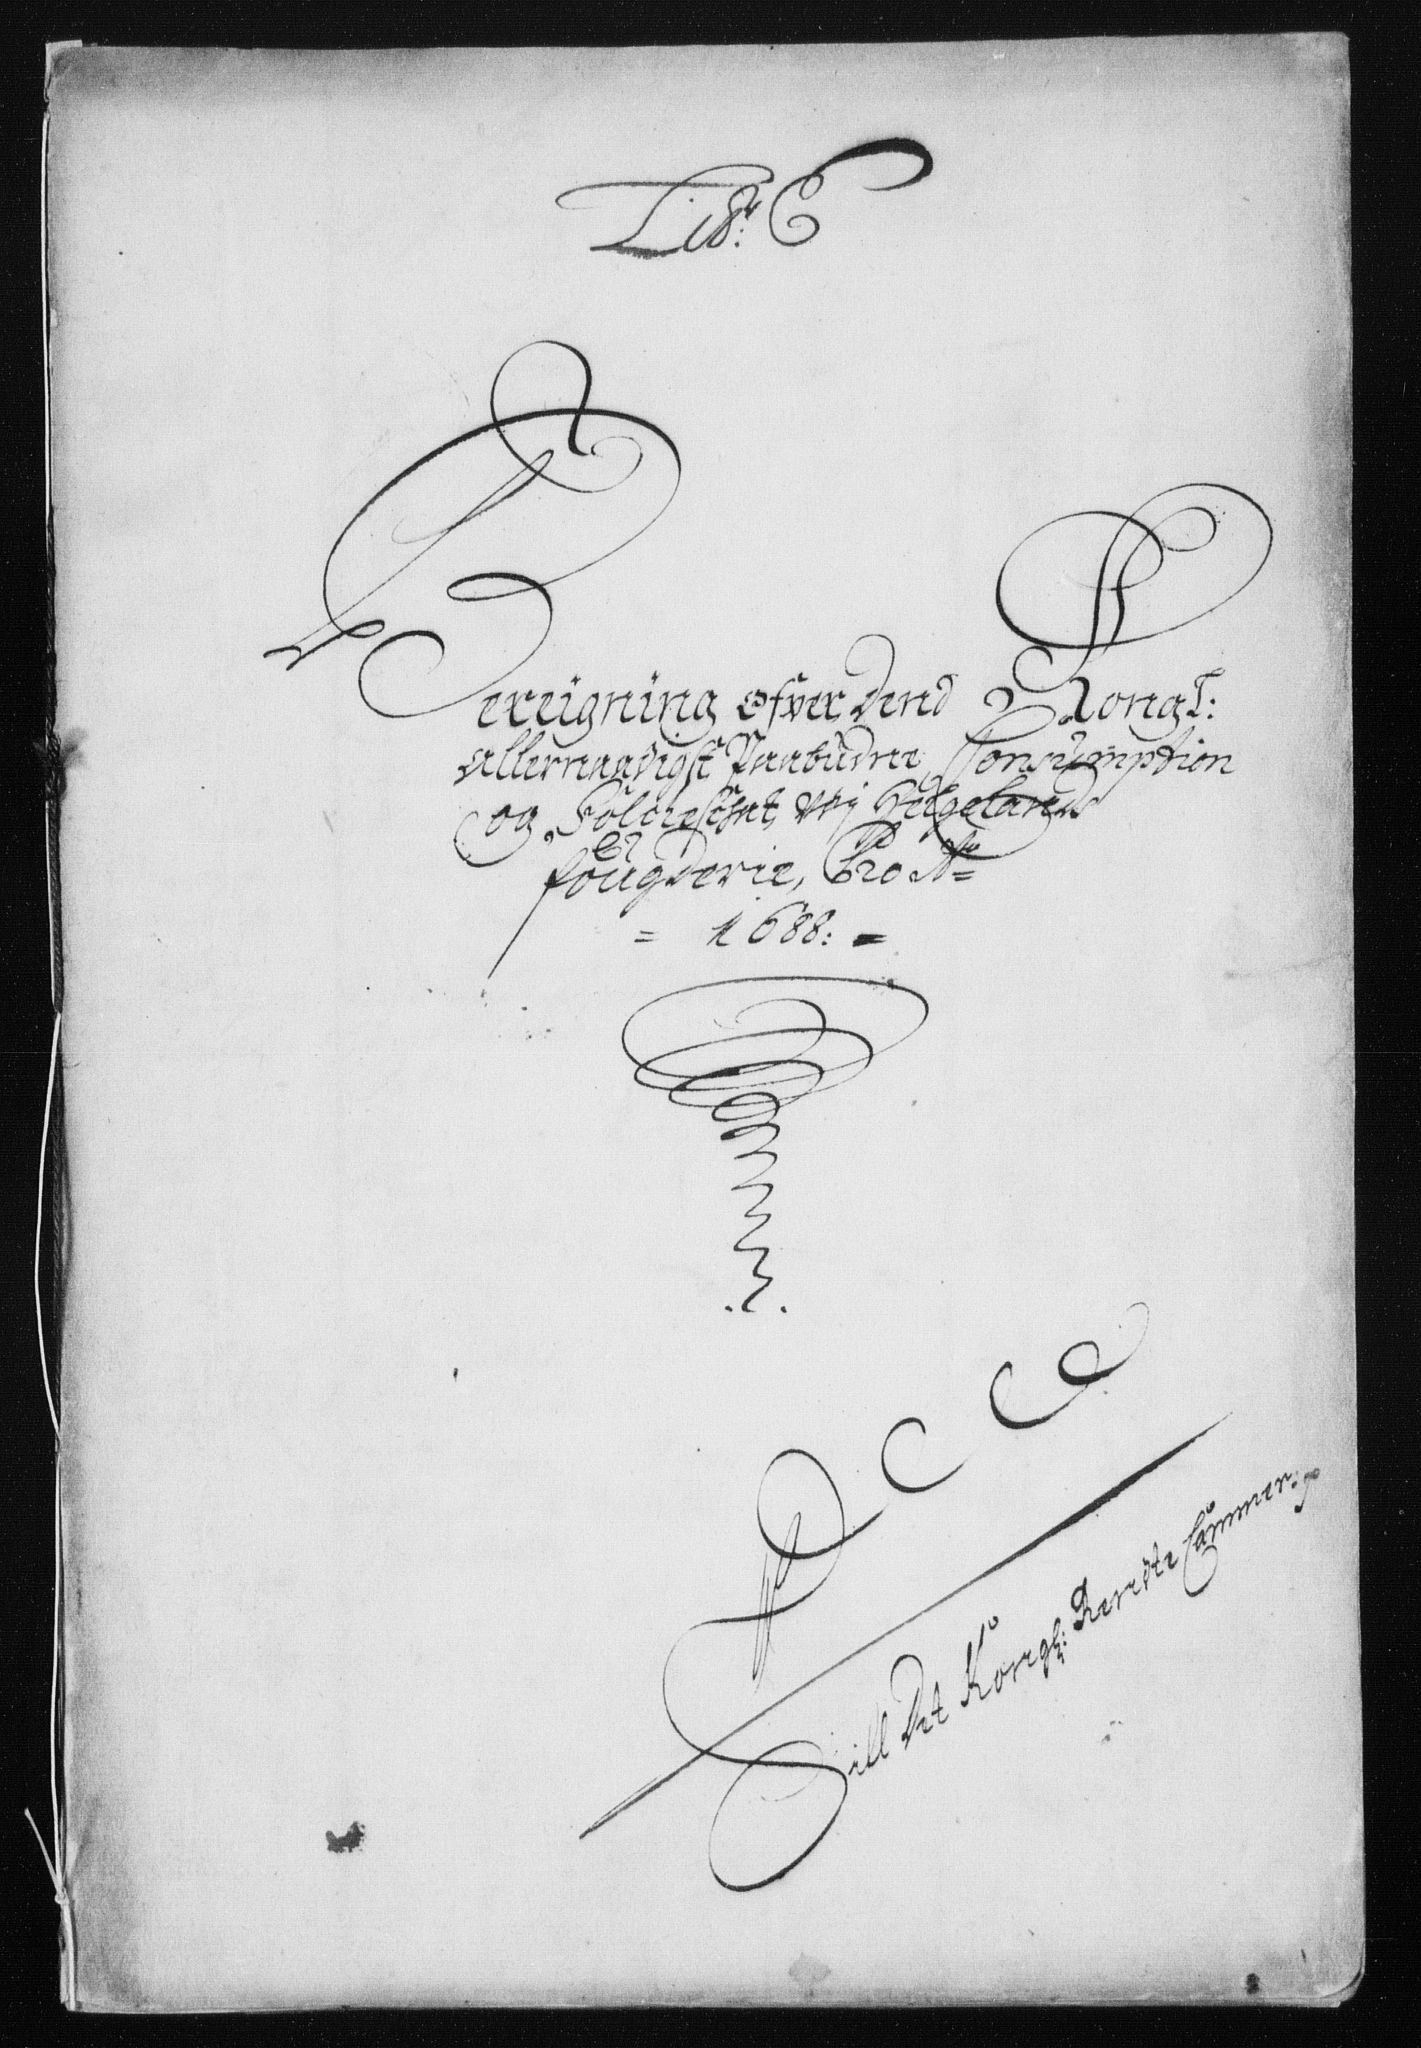 Litr: E
Bereigning ofver dend Kongl:
Allernaadigst Paabudne Consumption
og Folcheschat udj Helgelands
fougderie, Pro Ao
= 1688: =
Till Det Kongl: Rendte Cammer: